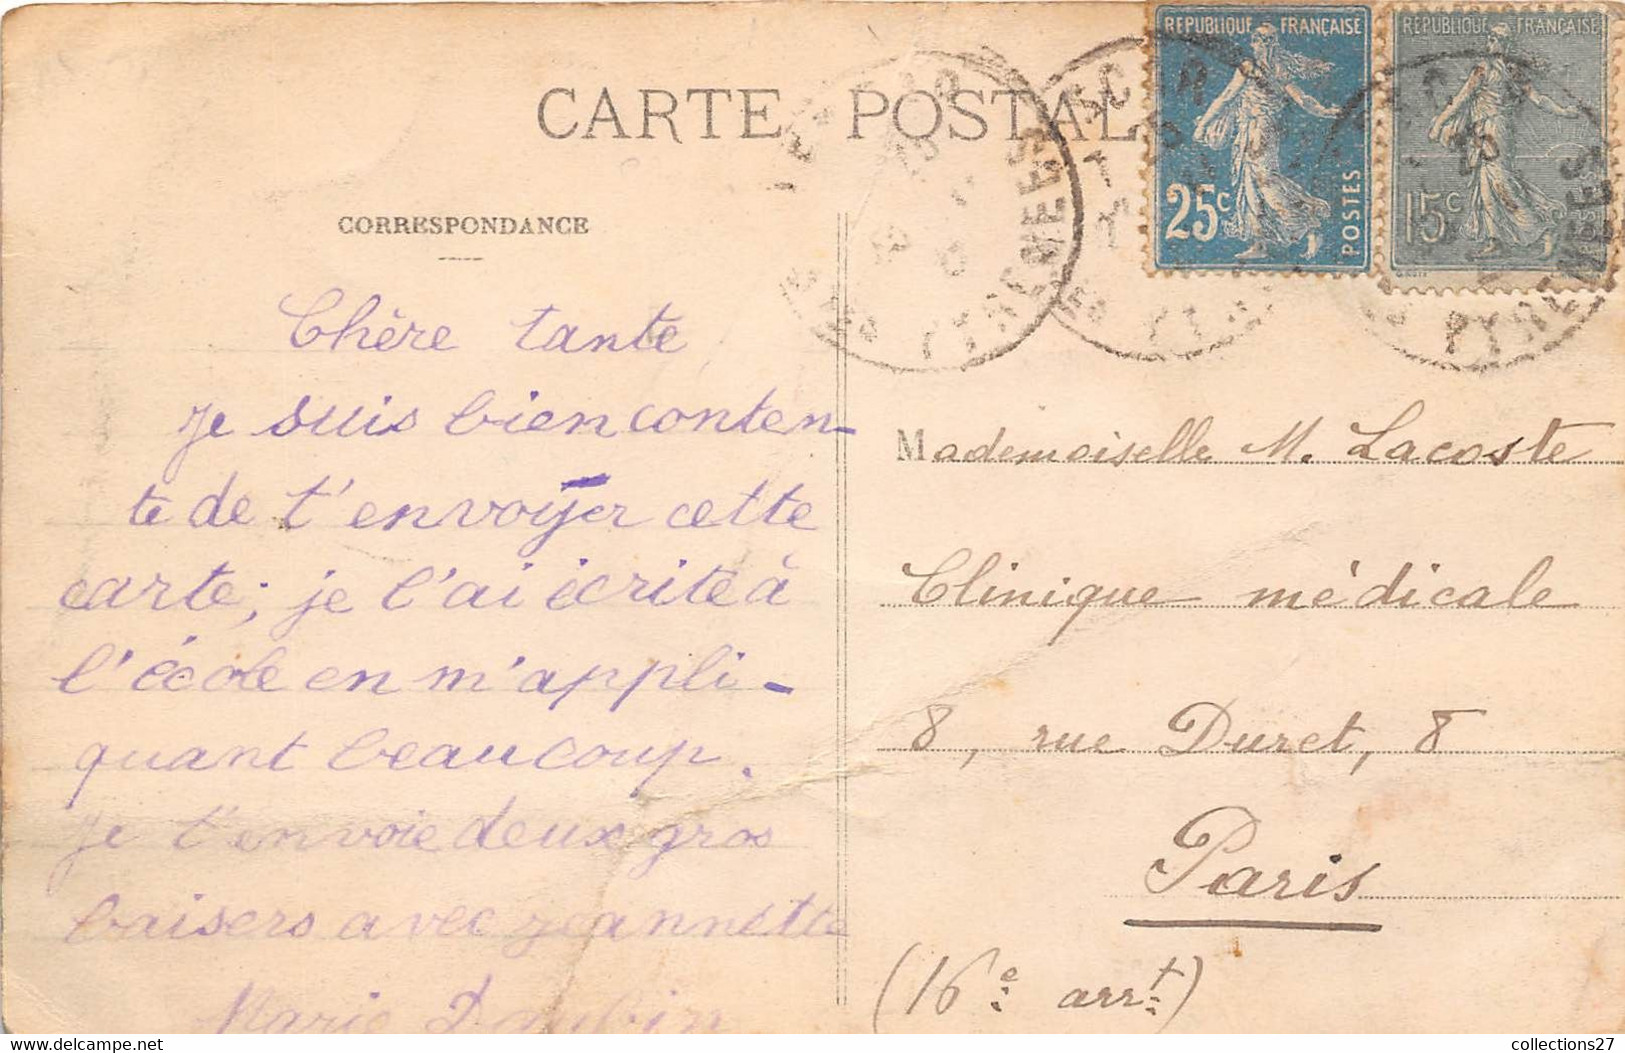 CARTE POSTALE
REPUBLIQUE FRANÇAISE
25c
POSTES
REPUBLIQUE FRANÇAISE
15c
POSTES
CORRESPONDANCE
Chère tante
je suis bien conten-
te de t'envoyer cette
carte; je l'ai écrite à
l'école en m'appli-
quant beaucoup.
Je t'envoie deux gros
baisers avec Jeannette
Marie
Mademoiselle M. Lacoste
Clinique médicale
8, rue Duret, 8
Paris
(16e arrt)
collections27